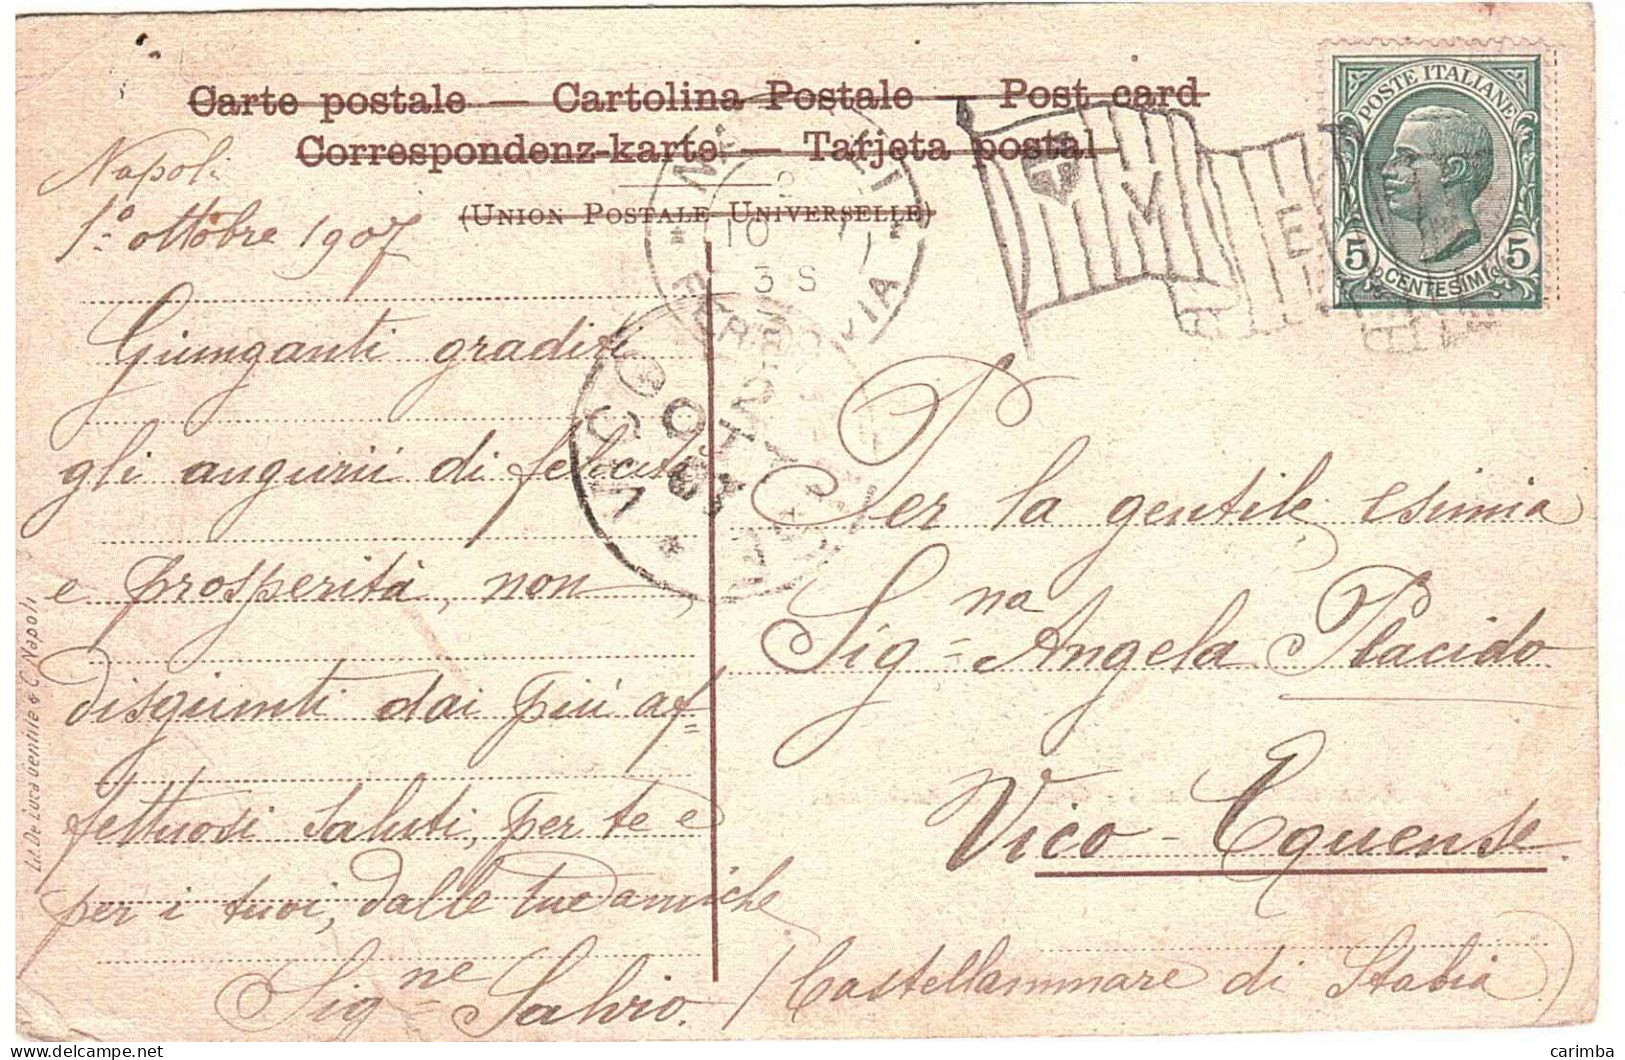 Carte postale — Cartolina Postale — Post card
Correspondenz-karte — Tarjeta postal
(Union Postale Universelle)
POSTE ITALIANE
5 CENTESIMI 5
V E
10
3 S
VICO
Napoli
1° ottobre 1907
Giunganti graditi
gli augurii di felicità
e prosperità, non
disgiunti dai più af=
fettuosi saluti, per te e
per i tuoi, dalle tue amiche
Sig.ne Salvio.
Per la gentile, esimia
Sig.na Angela Placido
Vico-Equense
(Castellammare di Stabia)
Lit. De Luca Gentile & C. Napoli
carimba